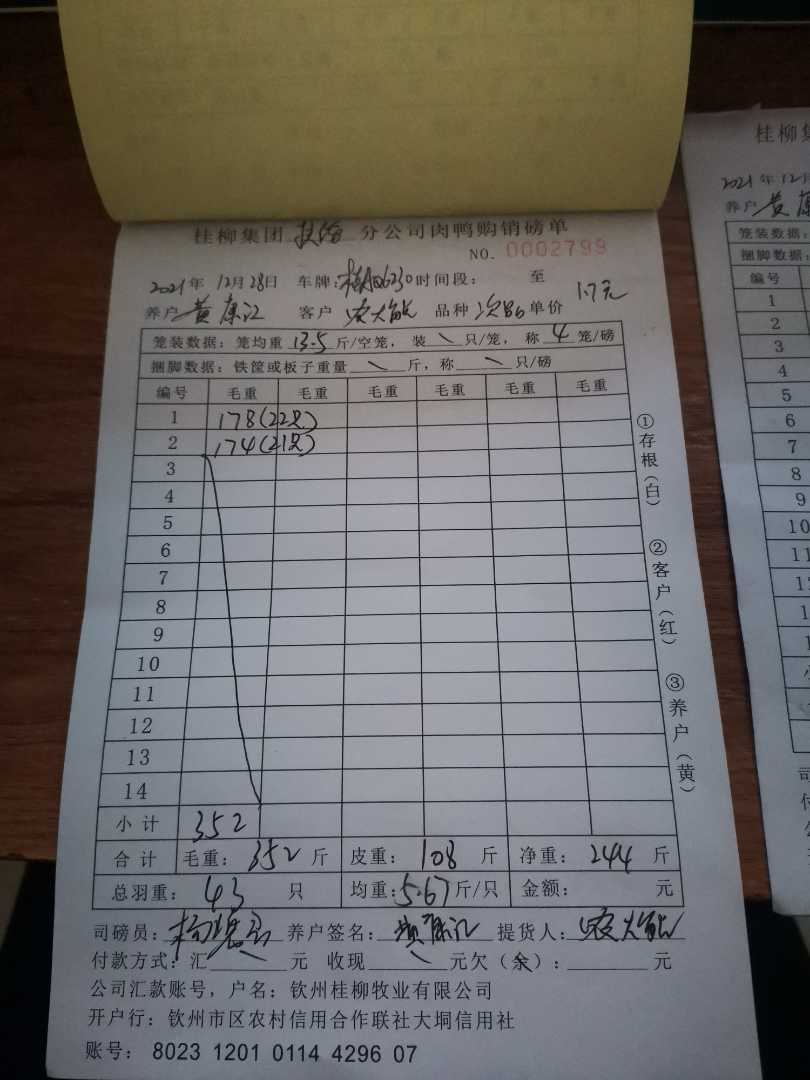 桂柳集团 扶绥 分公司肉鸭购销磅单
NO. 0002799
2021年 12月28日 车牌: 时间段: 至
养户 黄康江 客户 农大能 品种 次鸭 单价 1.7元
笼装数据: 笼均重 13.5 斤/空笼, 装 \ 只/笼, 称 4 笼/磅
捆脚数据: 铁筐或板子重量 \ 斤, 称 \ 只/磅
编号 毛重 毛重 毛重 毛重 毛重 毛重
1 178(22只)
2 174(21只)
3
4
5
6
7
8
9
10
11
12
13
14
小计 352
合计 毛重: 352 斤 皮重: 108 斤 净重: 244 斤
总羽重: 43 只 均重: 5.67 斤/只 金额: 元
司磅员: 养户签名: 黄康江 提货人: 农大能
付款方式: 汇 \ 元 收现 \ 元欠(余): 元
公司汇款账号, 户名: 钦州桂柳牧业有限公司
开户行: 钦州市区农村信用合作联社大垌信用社
账号: 8023 1201 0114 4296 07
①存根(白)
②客户(红)
③养户(黄)
桂柳集
2021年12月
养户 黄康
笼装数据:
捆脚数据:
编号
1
2
3
4
5
6
7
8
9
10
11